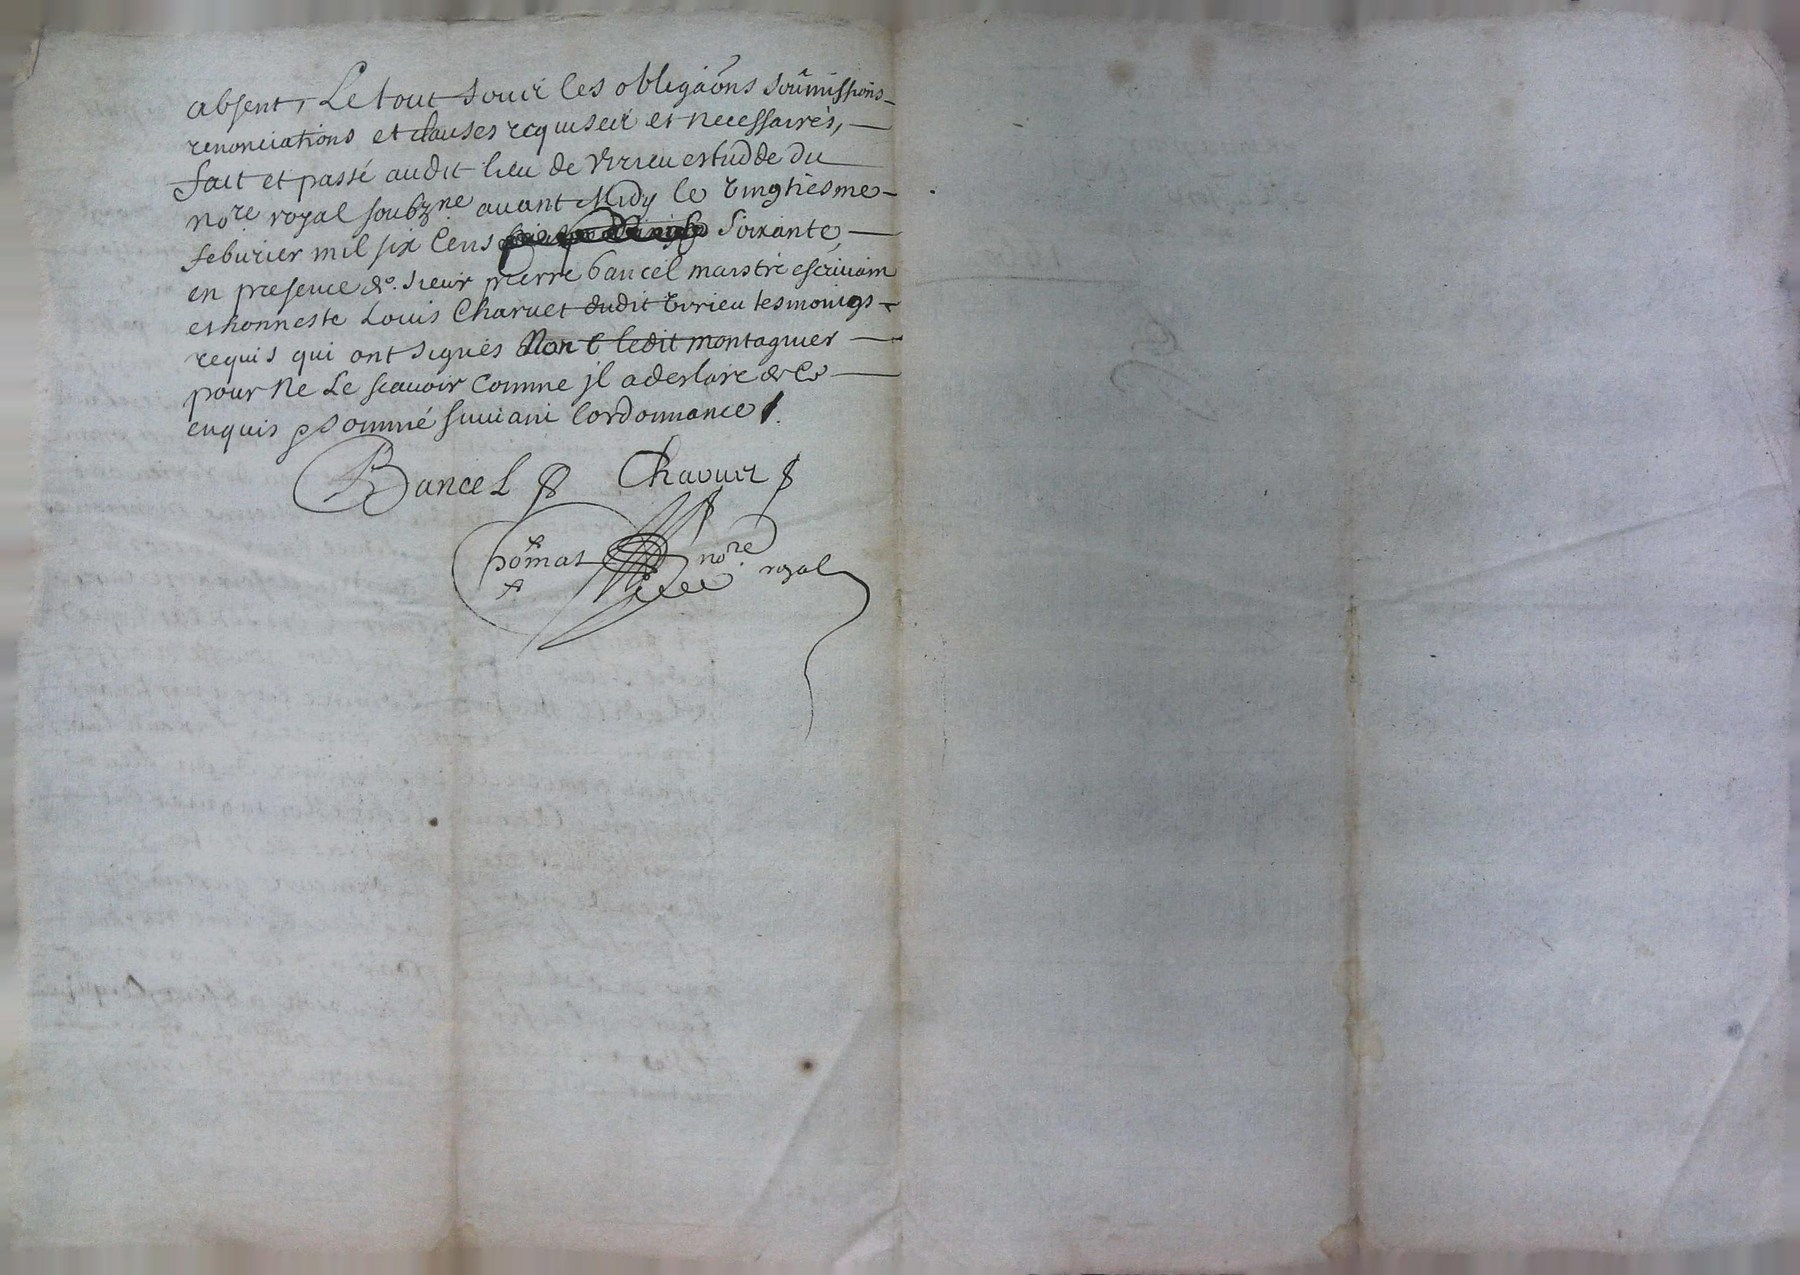 absent, Le tout soubz les obligaõns soûmissions
renonciations et clauses requises et necessaires,
fait et passé audit lieu de Virieu estudde du
no.re royal soubzne avant Midy le vingtiesme
feburier mil six Cens soixante
en presence de. sieur pierre bancel maistre escrivain
et honneste Louis Charvet dudit Virieu tesmoings
requis qui ont signés Non ledit montagnier
pour Ne Le scavoir Comme jl a desclaré de ce
enquis p sommé suivant l'ordonnance
Bancel Charvet
Thomas no.re royal